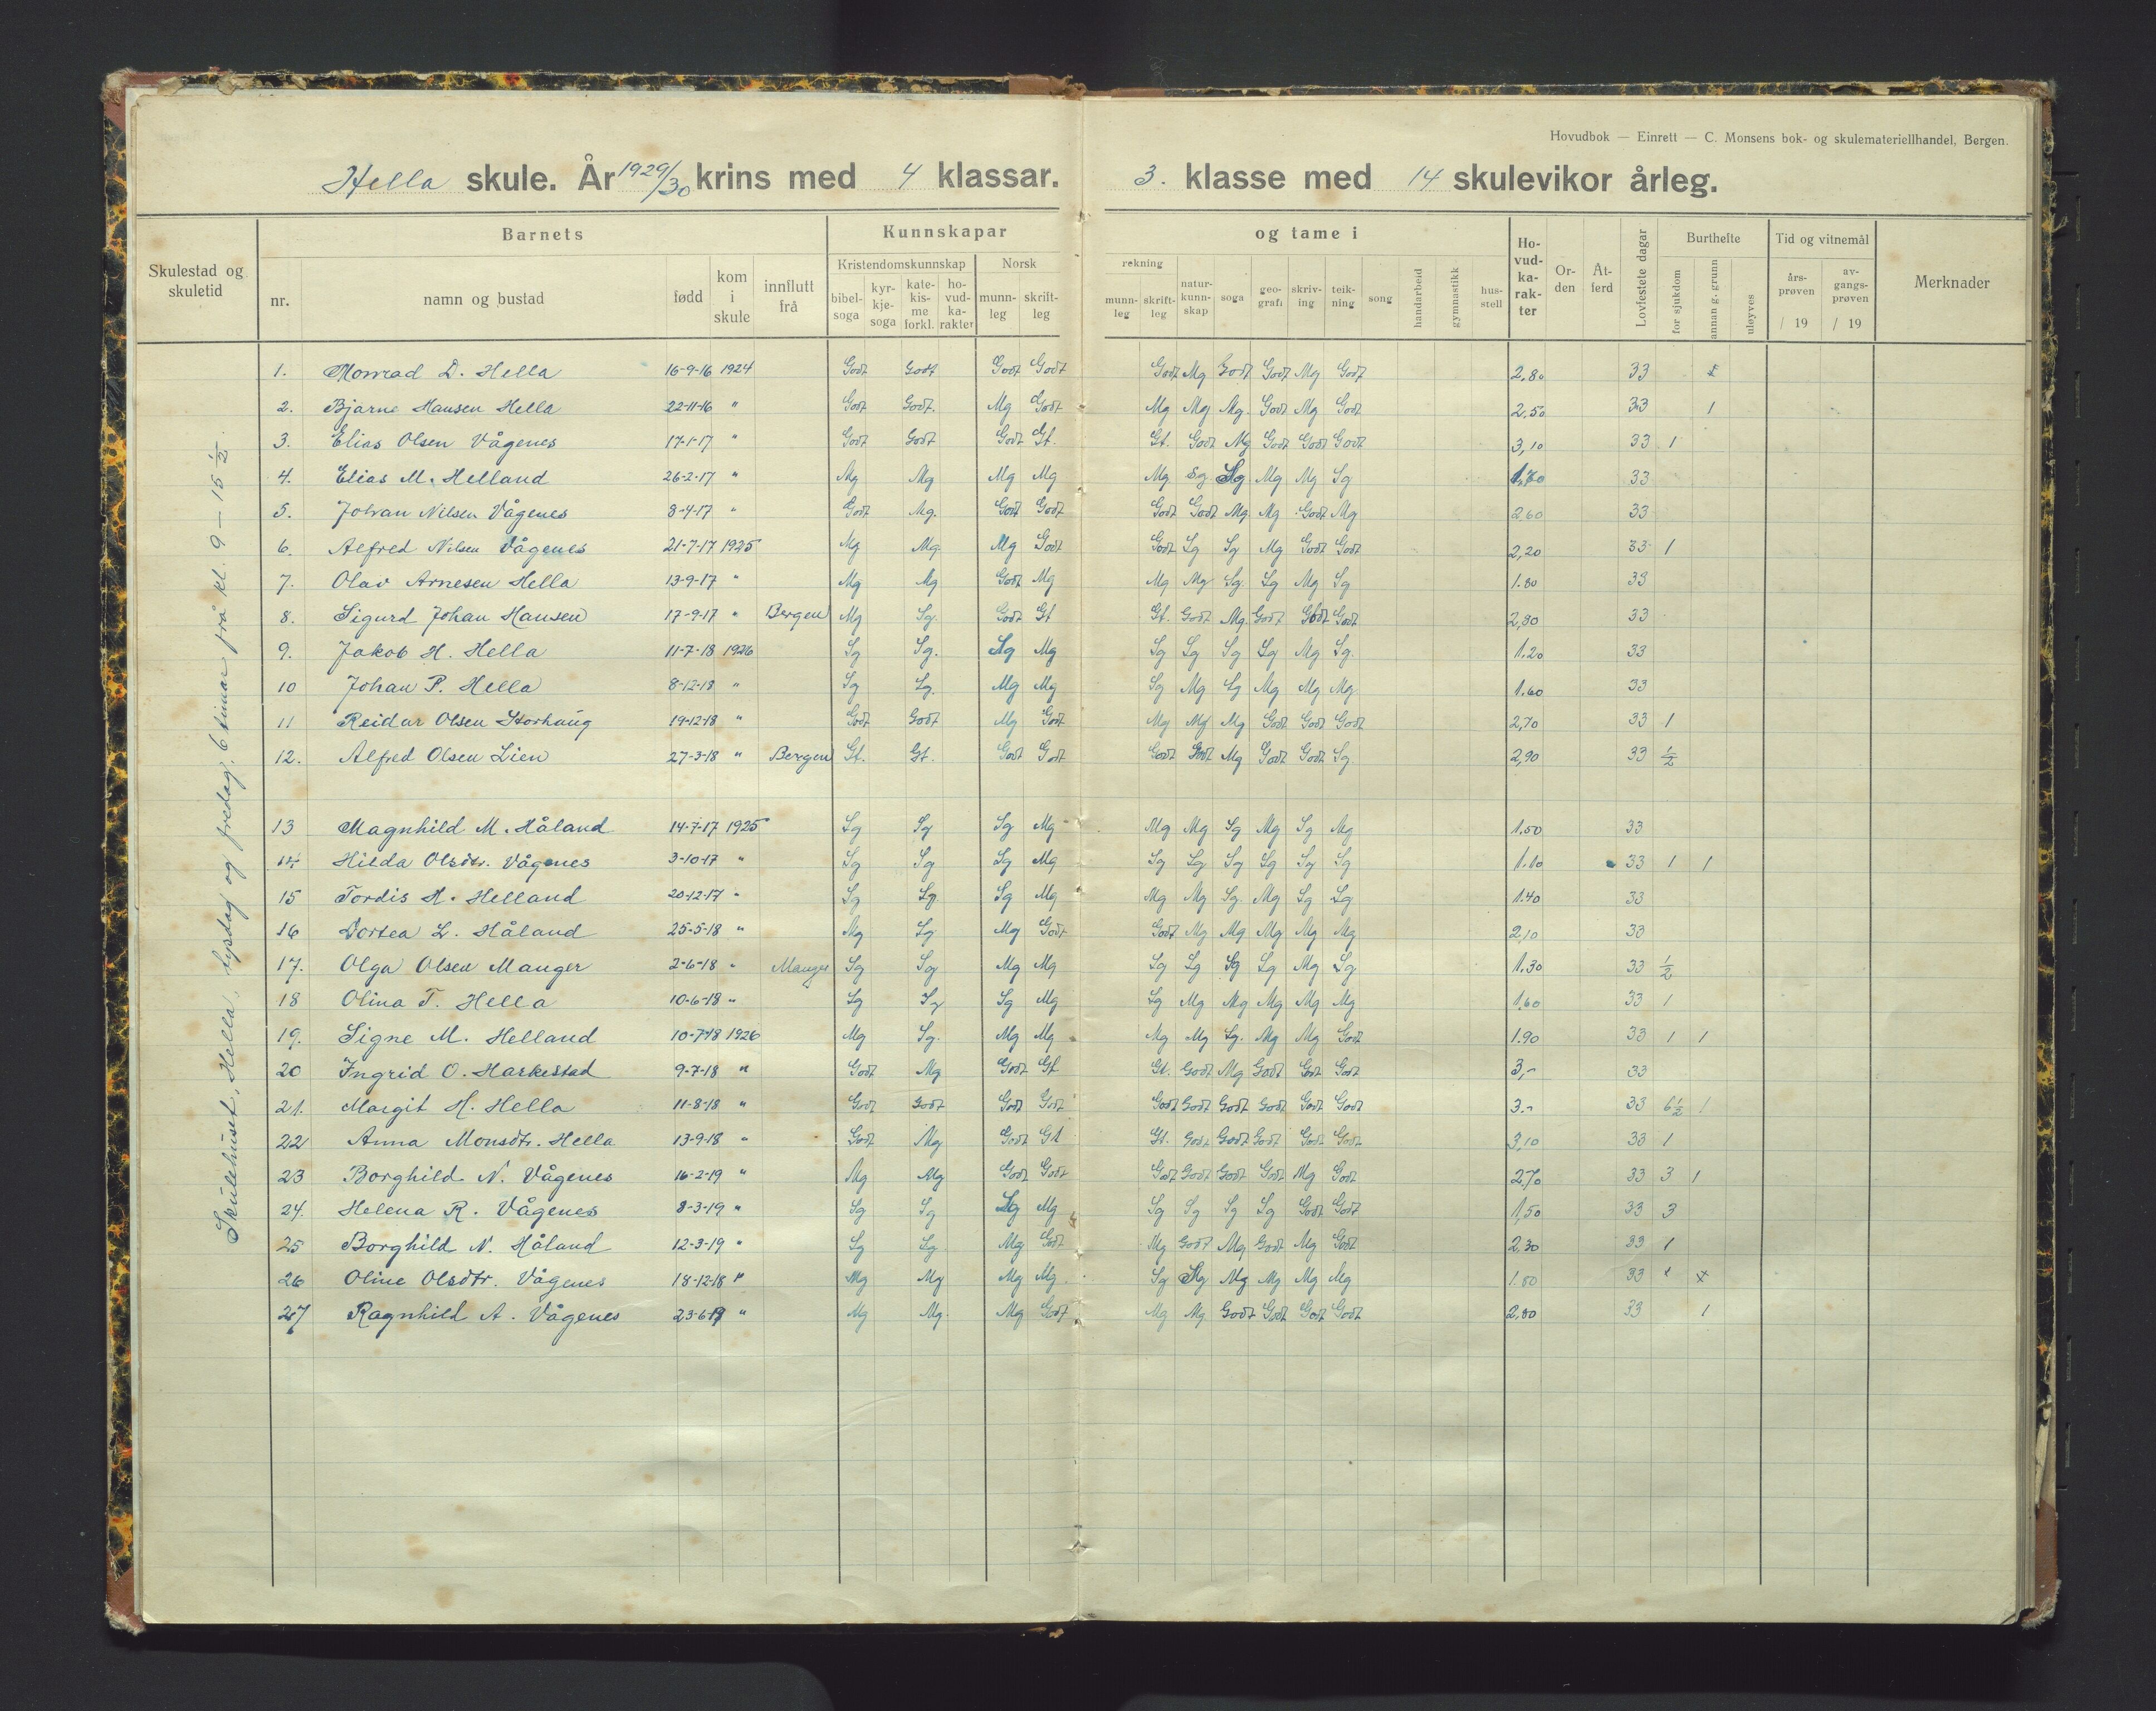 Hovudbok — Einrett — C. Monsens bok- og skulemateriellhandel, Bergen.
Hella skule. År 1929/30 krins med 4 klassar. 3. klasse med 14 skulevikor årleg.
Skulestad og skuletid
Barnets
nr.
namn og bustad
født
kom i skule
innflutt frå
Kunnskapar og tame i
Kristendomskunnskap
bibelsoga
kyrkjesoga
katekisme forkl.
hovudkarakter
Norsk
munnleg
skriftleg
rekning
munnleg
skriftleg
naturkunnskap
soga
geografi
skriving
teikning
song
handarbeid
gymnastikk
husstell
Hovudkarakter
Orden
Åtferd
Lovfestete dagar
Burthefte
for sjukdom
annan g. grunn
uløyves
Tid og vitnemål
årsprøven / 19
avgangsprøven / 19
Merknader
Skulehuset, Hella, tysdag og fredag, 6 timar frå kl. 9 – 15 ½.
1. Monrad D. Hella 16-9-16 1924 Godt Godt Godt Godt Godt Mg Godt Godt Mg Godt 2,80 33
2. Bjarne Hansen Hella 22-11-16 " Godt Godt. Mg Godt Mg Mg Mg. Godt Mg Godt 2,50 33 1
3. Elias Olsen Vågenes 17-1-17 " Godt Godt Godt Gt. Gt. Godt Mg Godt Godt Godt 3,10 33 1
4. Elias M. Helland 26-2-17 " Mg Mg Mg Mg Mg Sg Sg Mg Mg Sg 1,70 33
5. Johan Nilsen Vågenes 8-4-17 " Godt Mg. Godt Godt Godt Godt Mg Mg Godt Mg 2,60 33
6. Alfred Nilsen Vågenes 21-7-17 1925 Mg Mg. Mg Godt Godt Sg Sg Mg Godt Godt 2,20 33 1
7. Olav Arnesen Hella 13-9-17 " Mg Mg Godt Mg Mg Mg Sg. Sg Mg Sg 1.80 33
8. Sigurd Johan Hansen 17-9-17 " Bergen Mg Sg. Godt Gt Gt. Godt Mg. Godt Godt Godt 2,80 33
9. Jakob H. Hella 11-7-18 1926 Sg Sg. Sg Mg Sg Sg Sg Sg Mg Sg. 1.20 33
10 Johan P. Hella 8-12-18 " Sg Sg. Mg Mg Sg Mg Sg Mg Mg Mg. 1.60 33
11 Reidar Olsen Storhaug 19-12-18 " Godt Godt Mg Godt Mg Mg Mg Godt Godt Godt 2,70 33 1
12. Alfred Olsen Lien 27-3-18 " Bergen Gt. Gt. Godt Godt Godt Godt Mg Godt Godt Sg 2,90 33 ½
13 Magnhild M. Håland 14-7-17 1925 Sg Sg Sg Mg Mg Mg Sg Mg Sg Mg 1.50 33
14 Hilda Olsdtr. Vågenes 3-10-17 " Sg Sg Sg Mg Sg Sg Sg Sg Sg Sg 1.10 33 1 1
15 Tordis H. Helland 20-12-17 " Sg Sg Sg Mg Mg Mg Sg. Mg Sg Sg 1.40 33
16 Dortea L. Håland 25-5-18 " Mg Sg Mg Godt Godt Mg Mg Mg Mg Mg 2,10 33
17. Olga Olsen Manger 2-6-18 " Manger Sg Sg Mg Mg Sg Sg Sg Sg Mg Sg 1.30 33 ½
18 Olina T. Hella 10-6-18 " Sg Sg Sg Mg Sg Mg Mg Mg Mg Mg 1,60 33 1
19. Signe M. Helland 10-7-18 1926 Mg Sg. Mg Mg Mg Mg Sg. Mg Mg Godt 1.90 33 1 1
20 Ingrid O. Haskestad 9-7-18 " Godt Mg Godt Gt Gt. Godt Mg Godt Godt Godt 3,- 33
21. Margit H. Hella 11-8-18 " Godt Godt Godt Godt Godt Godt Godt Godt Godt Godt 3.- 33 6½ 1
22 Anna Monsdtr. Hella 13-9-18 " Godt Mg. Godt Gt Gt. Godt Godt Godt Godt Godt 3,10 33 1
23 Borghild N. Vågenes 16-2-19 " Mg Mg Godt Godt Godt Godt Godt Godt Mg Godt 2.70 33 3 1
24. Helena R. Vågenes 8-3-19 " Sg Sg Sg Mg Sg Sg Sg Sg Godt Godt 1,50 33 3
25 Borghild N. Håland 12-3-19 " Sg Sg Mg Godt Mg Godt Mg Godt Mg Godt 2.30 33 1
26 Oline Olsdtr. Vågenes 18-12-18 " Mg Mg Mg Mg. Sg Sg Mg Mg Mg Mg 1.80 33
27 Ragnhild A. Vågenes 23-6-19 " Mg Mg. Mg Godt Mg Mg Godt Godt Godt Godt 2,80 33 1